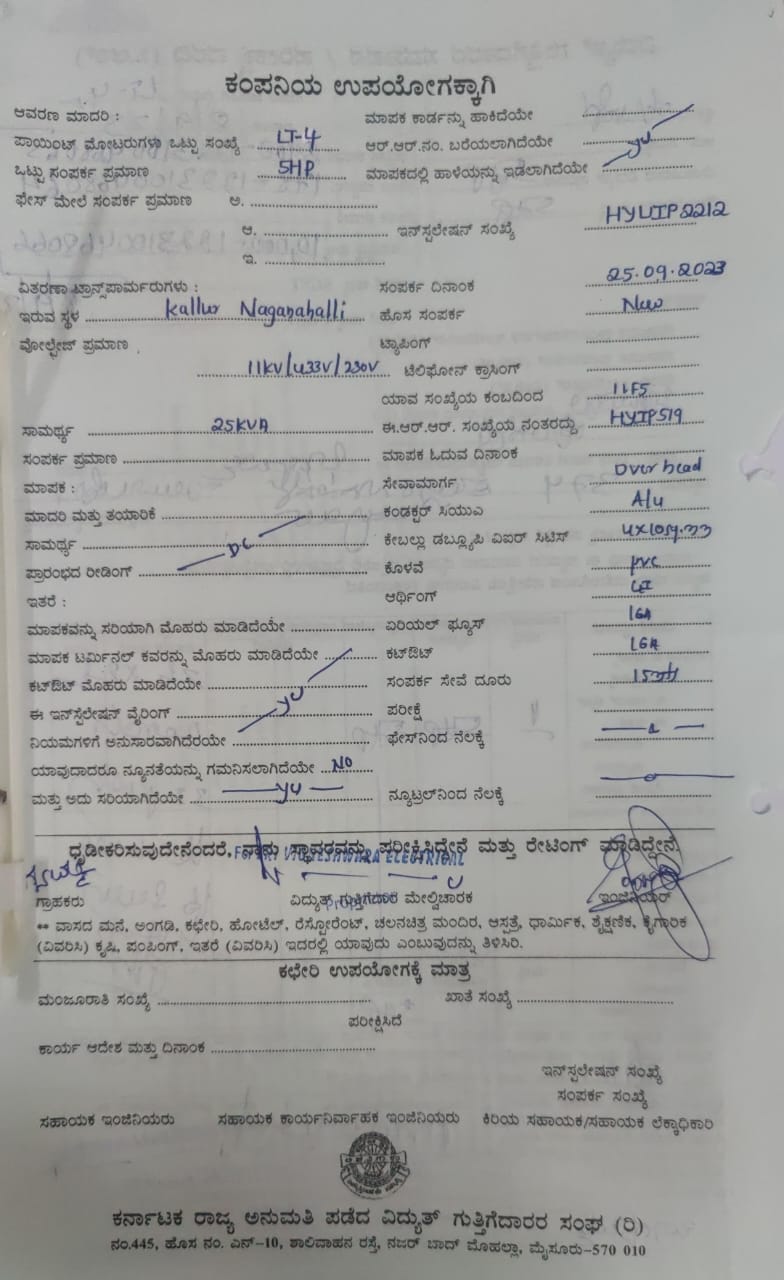 ಕಂಪನಿಯ ಉಪಯೋಗಕ್ಕಾಗಿ
ಆವರಣ ಮಾದರಿ : ಮಾಪಕ ಕಾರ್ಡನ್ನು ಹಾಕಿದೆಯೇ
ಪಾಯಿಂಟ್ ಮೋಟರುಗಳ ಒಟ್ಟು ಸಂಖ್ಯೆ LT-4 ಆರ್.ಆರ್.ನಂ. ಬರೆಯಲಾಗಿದೆಯೇ
ಒಟ್ಟು ಸಂಪರ್ಕ ಪ್ರಮಾಣ 5HP ಮಾಪಕದಲ್ಲಿ ಹಾಳೆಯನ್ನು ಇಡಲಾಗಿದೆಯೇ
ಫೇಸ್ ಮೇಲೆ ಸಂಪರ್ಕ ಪ್ರಮಾಣ ಅ.
ಆ. ಇನ್‌ಸ್ಟಲೇಷನ್ ಸಂಖ್ಯೆ HYLIP2212
ಇ.
ವಿತರಣಾ ಟ್ರಾನ್ಸ್‌ಪಾರ್ಮರುಗಳು : ಸಂಪರ್ಕ ದಿನಾಂಕ 25.09.2023
ಇರುವ ಸ್ಥಳ Kallur Naganahalli ಹೊಸ ಸಂಪರ್ಕ New
ವೋಲ್ಟೇಜ್ ಪ್ರಮಾಣ ಟ್ಯಾಪಿಂಗ್
11KV/433V/230V ಟೆಲಿಫೋನ್ ಕ್ರಾಸಿಂಗ್
ಯಾವ ಸಂಖ್ಯೆಯ ಕಂಬದಿಂದ 11F5
ಸಾಮರ್ಥ್ಯ 25KVA ಈ.ಆರ್.ಆರ್. ಸಂಖ್ಯೆಯ ನಂತರದ್ದು HYIP519
ಸಂಪರ್ಕ ಪ್ರಮಾಣ ಮಾಪಕ ಓದುವ ದಿನಾಂಕ
ಮಾಪಕ : ಸೇವಾಮಾರ್ಗ Over head
ಮಾದರಿ ಮತ್ತು ತಯಾರಿಕೆ ಕಂಡಕ್ಟರ್ ಸಿಯುಎ A/u
ಸಾಮರ್ಥ್ಯ DC ಕೇಬಲ್ಲು ಡಬ್ಲ್ಯೂಪಿ ವಿಐರ್ ಸಿಟಿಸ್
ಪ್ರಾರಂಭದ ರೀಡಿಂಗ್ ಕೊಳವೆ PVC
ಇತರೆ : ಆರ್ಥಿಂಗ್ GI
ಮಾಪಕವನ್ನು ಸರಿಯಾಗಿ ಮೊಹರು ಮಾಡಿದೆಯೇ ಏರಿಯಲ್ ಫ್ಯೂಸ್ 16A
ಮಾಪಕ ಟರ್ಮಿನಲ್ ಕವರನ್ನು ಮೊಹರು ಮಾಡಿದೆಯೇ ಕಟ್‌ಔಟ್ 16A
ಕಟ್‌ಔಟ್ ಮೊಹರು ಮಾಡಿದೆಯೇ ಸಂಪರ್ಕ ಸೇವೆ ದೂರು
ಈ ಇನ್‌ಸ್ಟಲೇಷನ್ ವೈರಿಂಗ್ ಪರೀಕ್ಷೆ
ನಿಯಮಗಳಿಗೆ ಅನುಸಾರವಾಗಿದೆರಯೇ ಫೇಸ್‌ನಿಂದ ನೆಲಕ್ಕೆ
ಯಾವುದಾದರೂ ನ್ಯೂನತೆಯನ್ನು ಗಮನಿಸಲಾಗಿದೆಯೇ NO
ಮತ್ತು ಅದು ಸರಿಯಾಗಿದೆಯೇ ನ್ಯೂಟ್ರಲ್‌ನಿಂದ ನೆಲಕ್ಕೆ
ಧೃಡೀಕರಿಸುವುದೇನೆಂದರೆ, ನಾನು ಸ್ಥಾವರವನ್ನು ಪರೀಕ್ಷಿಸಿದ್ದೇನೆ ಮತ್ತು ರೇಟಿಂಗ್ ಮಾಡಿದ್ದೇನೆ.
ELECTRICAL
ಗ್ರಾಹಕರು ವಿದ್ಯುತ್ ಗುತ್ತಿಗೆದಾರ ಮೇಲ್ವಿಚಾರಕ ಇಂಜಿನಿಯರ್
** ವಾಸದ ಮನೆ, ಅಂಗಡಿ, ಕಛೇರಿ, ಹೋಟೆಲ್, ರೆಸ್ಟೋರೆಂಟ್, ಚಲನಚಿತ್ರ ಮಂದಿರ, ಆಸ್ಪತ್ರೆ, ಧಾರ್ಮಿಕ, ಶೈಕ್ಷಣಿಕ, ಕೈಗಾರಿಕ
(ವಿವರಿಸಿ) ಕೃಷಿ, ಪಂಪಿಂಗ್, ಇತರೆ (ವಿವರಿಸಿ) ಇದರಲ್ಲಿ ಯಾವುದು ಎಂಬುವುದನ್ನು ತಿಳಿಸಿರಿ.
ಕಛೇರಿ ಉಪಯೋಗಕ್ಕೆ ಮಾತ್ರ
ಮಂಜೂರಾತಿ ಸಂಖ್ಯೆ ಖಾತೆ ಸಂಖ್ಯೆ
ಪರೀಕ್ಷಿಸಿದೆ
ಕಾರ್ಯ ಆದೇಶ ಮತ್ತು ದಿನಾಂಕ
ಇನ್‌ಸ್ಟಲೇಷನ್ ಸಂಖ್ಯೆ
ಸಂಪರ್ಕ ಸಂಖ್ಯೆ
ಸಹಾಯಕ ಇಂಜಿನಿಯರು ಸಹಾಯಕ ಕಾರ್ಯನಿರ್ವಾಹಕ ಇಂಜಿನಿಯರು ಕಿರಿಯ ಸಹಾಯಕ/ಸಹಾಯಕ ಲೆಕ್ಕಾಧಿಕಾರಿ
ಕರ್ನಾಟಕ ರಾಜ್ಯ ಅನುಮತಿ ಪಡೆದ ವಿದ್ಯುತ್ ಗುತ್ತಿಗೆದಾರರ ಸಂಘ (ರಿ)
ನಂ.445, ಹೊಸ ನಂ. ಎನ್-10, ಶಾಲಿವಾಹನ ರಸ್ತೆ, ನಜರ್ ಬಾದ್ ಮೊಹಲ್ಲಾ, ಮೈಸೂರು-570 010